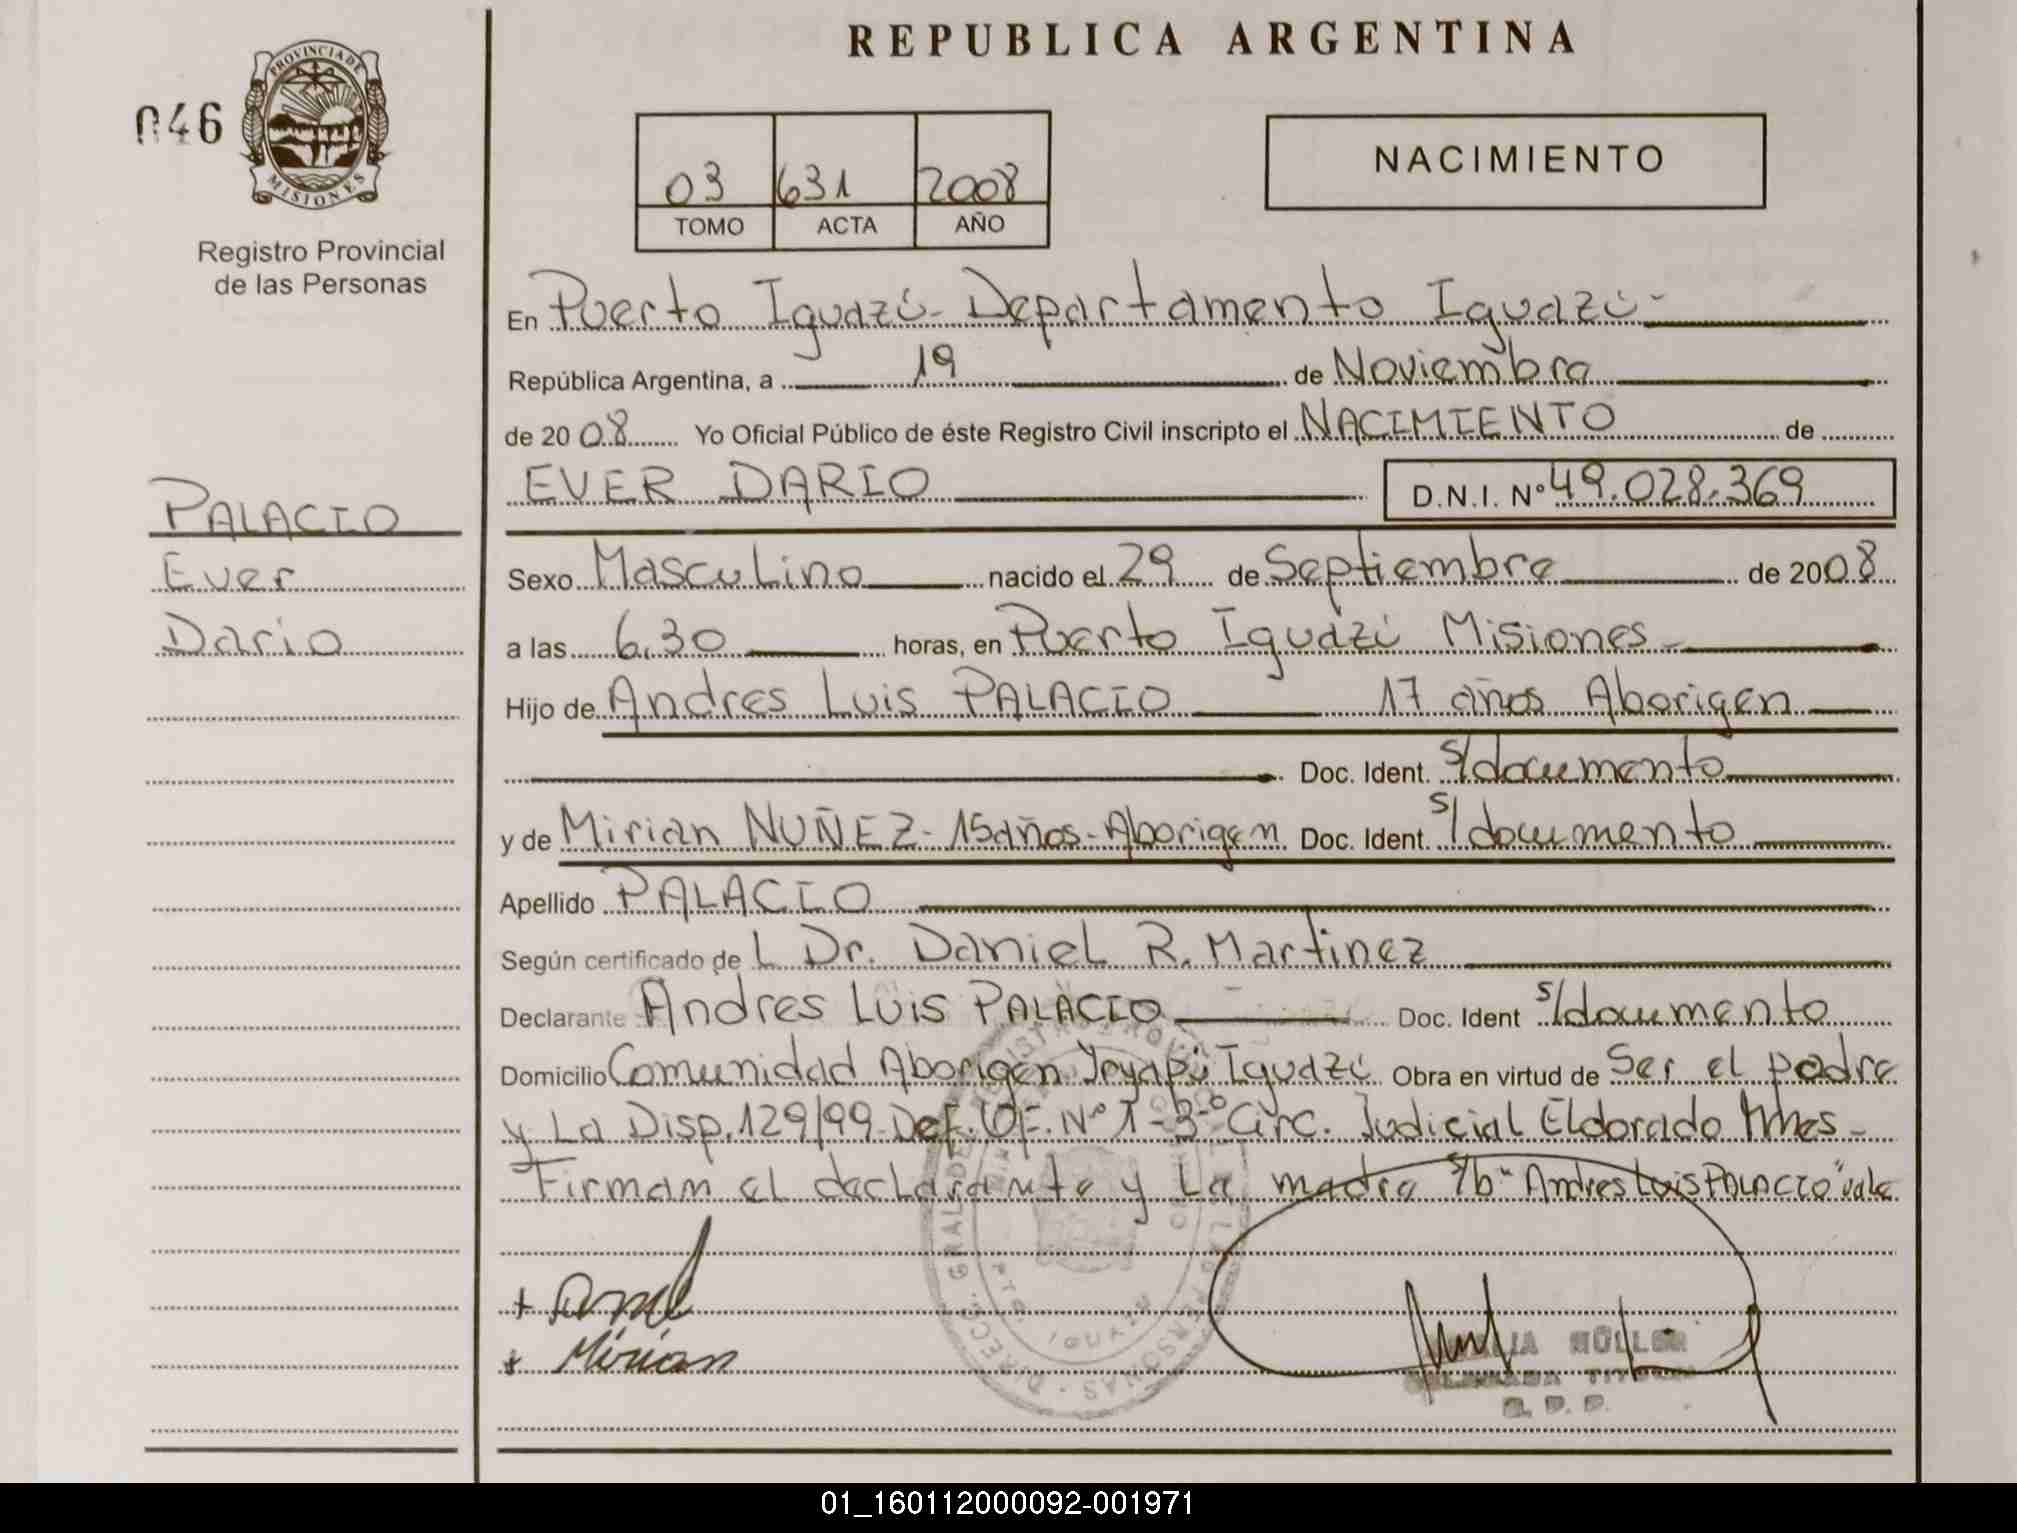 REPUBLICA ARGENTINA
046
PROVINCIA DE
MISIONES
Registro Provincial
de las Personas
03 631 2008
TOMO ACTA AÑO
NACIMIENTO
En Puerto Iguazú - Departamento Iguazú -
República Argentina, a 19 de Noviembre
de 2008 Yo Oficial Público de éste Registro Civil inscripto el NACIMIENTO de
EVER DARIO D.N.I. Nº 49.028.369
PALACIO
Ever
Dario
Sexo Masculino nacido el 29 de Septiembre de 2008
a las 6,30 horas, en Puerto Iguazú Misiones -
Hijo de Andres Luis PALACIO 17 años Aborigen
Doc. Ident. s/documento
y de Mirian NUÑEZ - 15 años - Aborigen Doc. Ident. s/documento
Apellido PALACIO
Según certificado de L Dr. Daniel R. Martinez
Declarante Andres Luis PALACIO Doc. Ident s/documento
Domicilio Comunidad Aborigen Yryapú Iguazú Obra en virtud de Ser el padre
y La Disp. 129/99 - Def. Of. Nº 1 - 3º Circ. Judicial Eldorado Mnes -
Firman el declarante y La madre s/b "Andres Luis PALACIO" vale
Mirian
MÜLLER
01_160112000092-001971